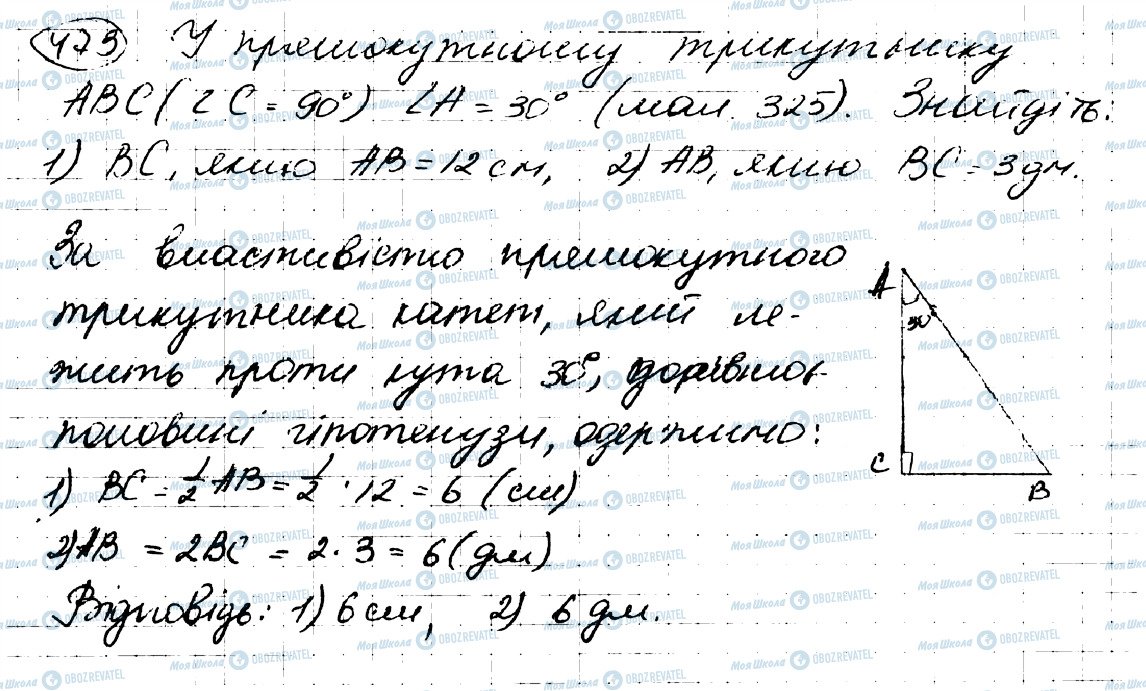 473 У прямокутному трикутнику
ABC (∠C = 90°) ∠A = 30° (мал. 325). Знайдіть:
1) BC, якщо AB = 12 см, 2) AB, якщо BC = 3 дм.
За властивістю прямокутного
трикутника катет, який ле-
жить проти кута 30°, дорівнює
половині гіпотенузи, одержимо:
1) BC = 1/2 AB = 1/2 · 12 = 6 (см)
2) AB = 2BC = 2 · 3 = 6 (дм)
Відповідь: 1) 6 см, 2) 6 дм.
A
30°
C
B
МояШкола OBOZREVATEL